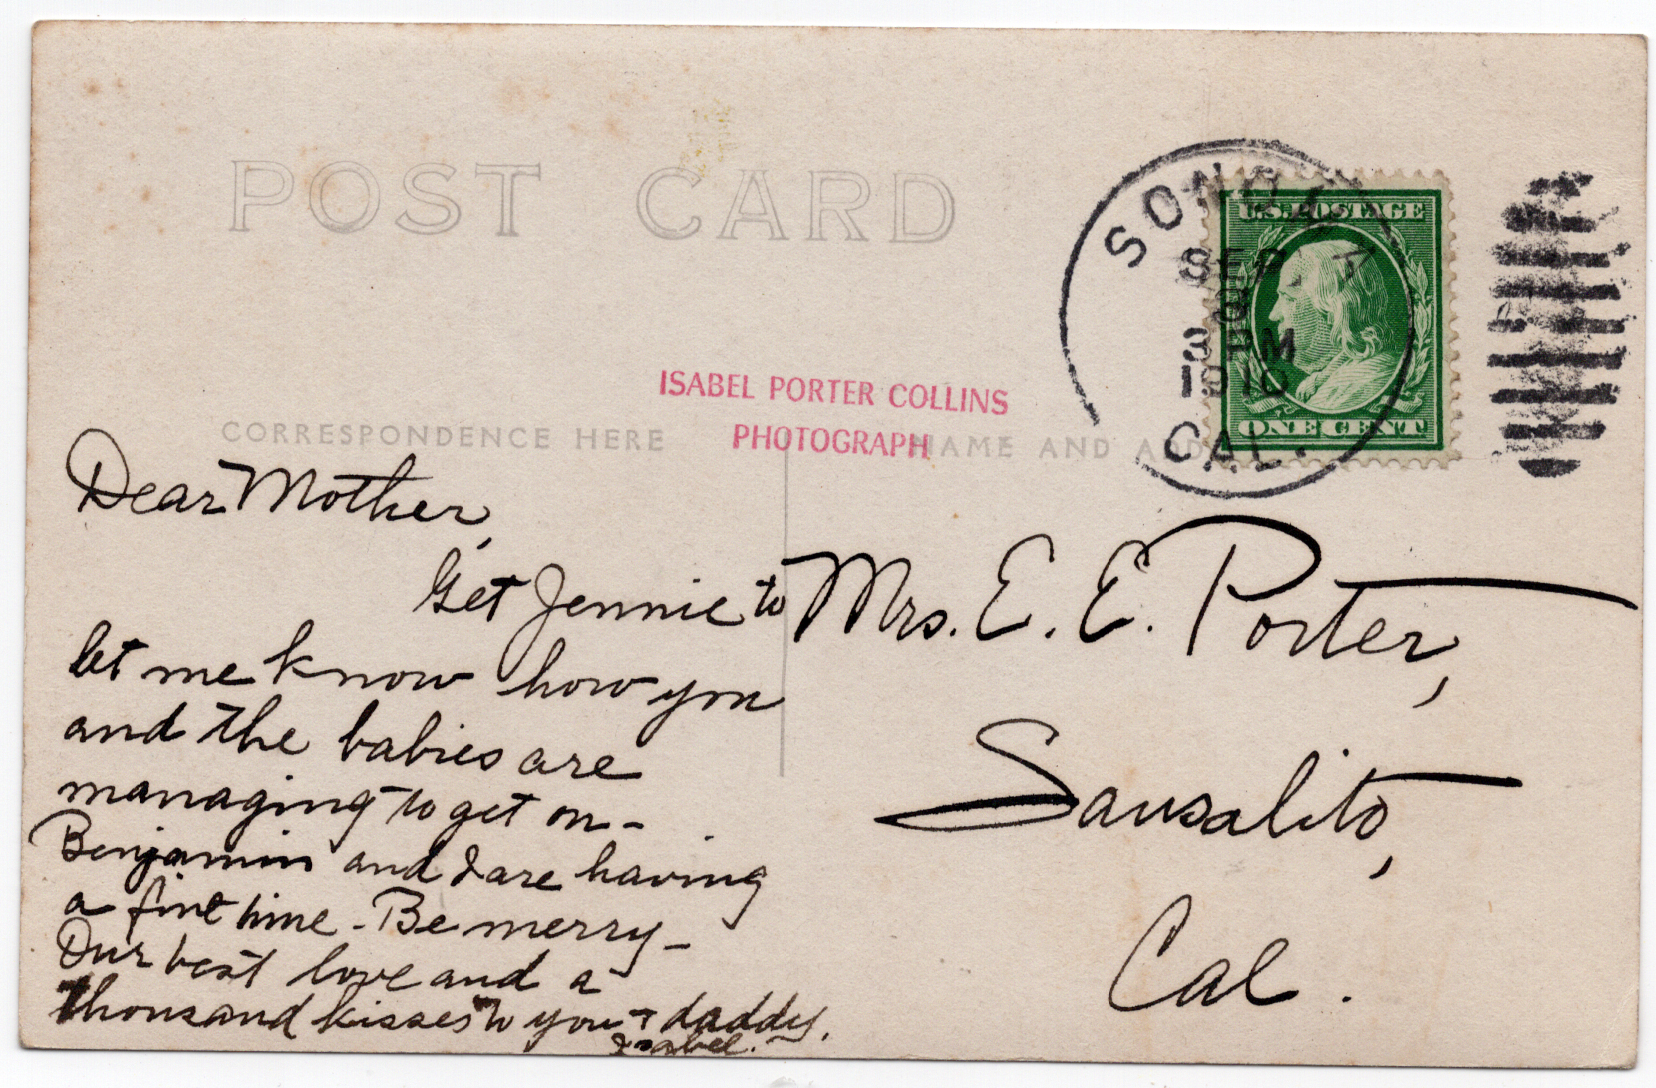 POST CARD
SONOMA
SEP
8
3 PM
1910
CAL.
U.S. POSTAGE
ONE CENT
ISABEL PORTER COLLINS
PHOTOGRAPH
CORRESPONDENCE HERE
NAME AND ADD
Dear Mother,
Get Jennie to
let me know how you
and the babies are
managing to get on -
Benjamin and I are having
a fine time - Be merry -
Our best love and a
thousand kisses to you + daddy.
Isabel.
Mrs. E. E. Porter,
Sausalito,
Cal.